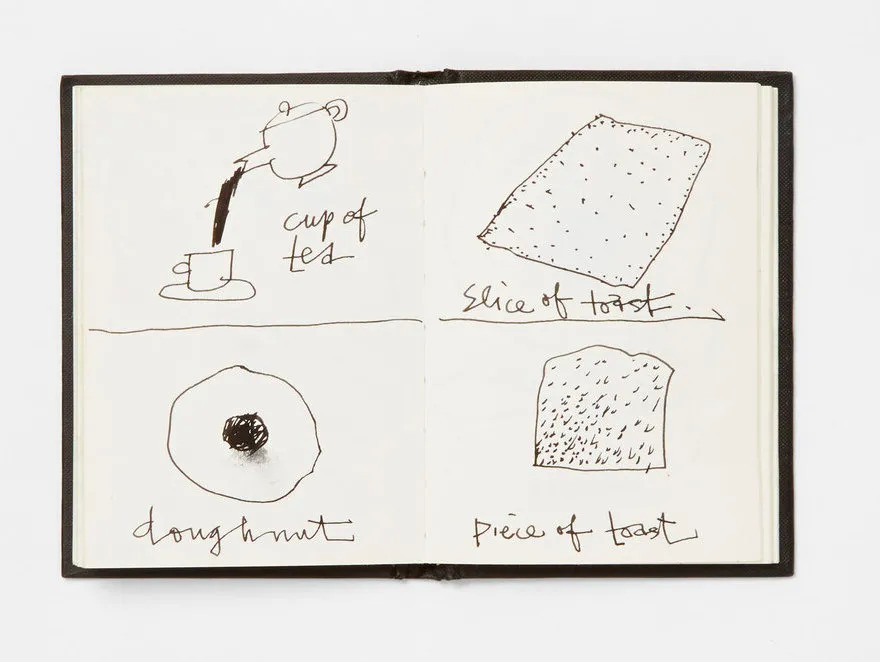 cup of
tea
slice of toast.
doughnut
piece of toast